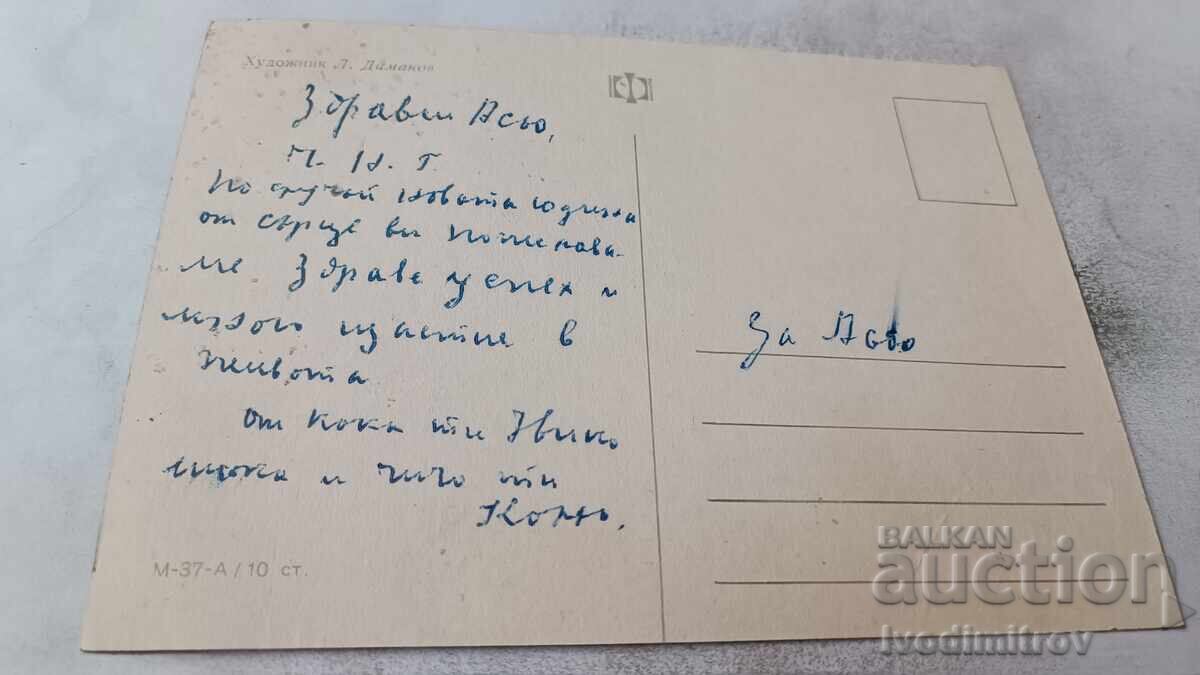 Художник Л. Даманов
Здравей Асьо,
Ч. Н. Г.
По случай новата година
от сърце ви пожелава-
ме Здраве успех и
много щастие в
живота
от кока ти
и чичо ти
Кольо.
М-37-А / 10 ст.
За Асьо
BALKAN
auction
Ivodimitrov